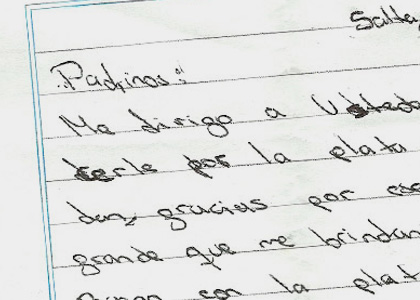 Salta,
Padrinos:
Me dirigo a Ustedes
cerle por la plata
dan, gracias por ese
grande que me brindan
con la plat